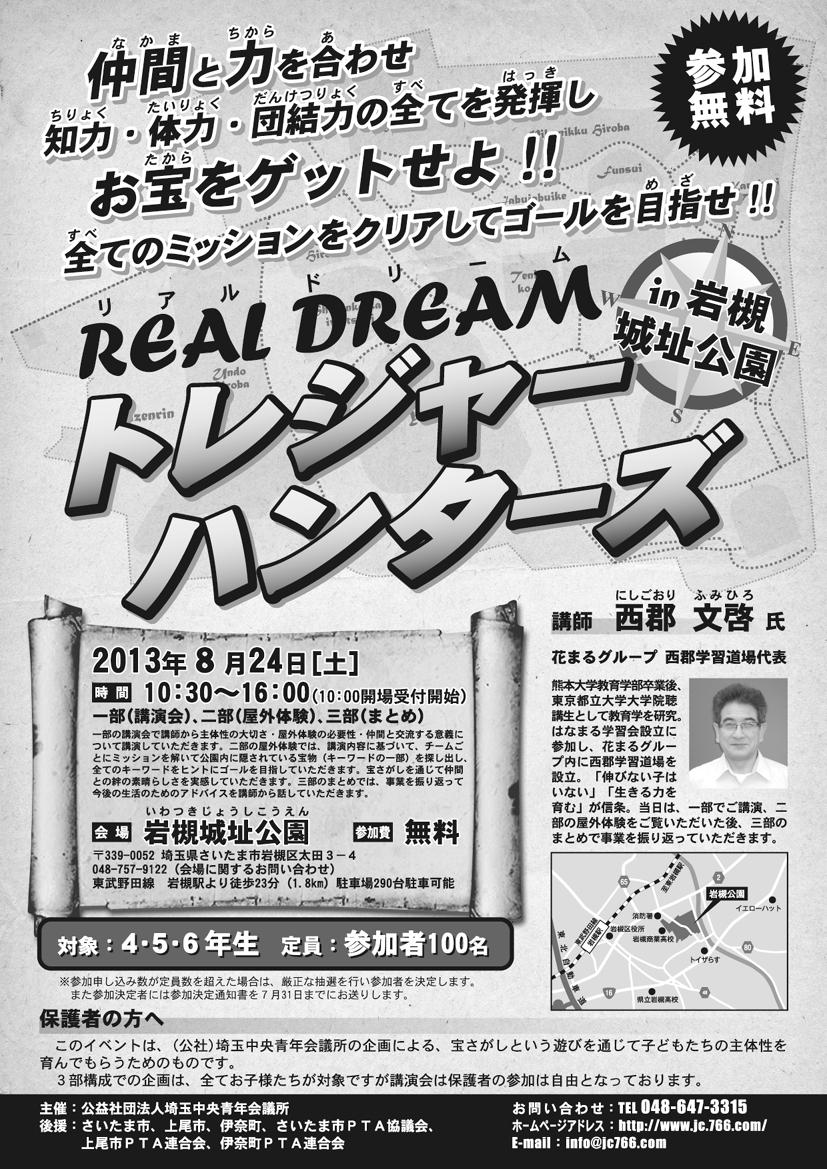 参加
無料
なかま ちから あ
仲間と力を合わせ
ちりょく たいりょく だんけつりょく すべ はっき
知力・体力・団結力の全てを発揮し
たから
お宝をゲットせよ!!
すべ めざ
全てのミッションをクリアしてゴールを目指せ!!
リアルドリーム
REAL DREAM
in 岩槻
城址公園
N
W
E
S
Hiroba
Funsui
Undo
トレジャー
ハンターズ
2013年8月24日[土]
時間 10:30〜16:00(10:00開場受付開始)
一部(講演会)、二部(屋外体験)、三部(まとめ)
一部の講演会で講師から主体性の大切さ・屋外体験の必要性・仲間と交流する意義に
ついて講演していただきます。二部の屋外体験では、講演内容に基づいて、チームご
とにミッションを解いて公園内に隠されている宝物(キーワードの一部)を探し出し、
全てのキーワードをヒントにゴールを目指していただきます。宝さがしを通じて仲間
との絆の素晴らしさを実感していただきます。三部のまとめでは、事業を振り返って
今後の生活のためのアドバイスを講師から話していただきます。
いわつきじょうしこうえん
会場 岩槻城址公園 参加費 無料
〒339-0052 埼玉県さいたま市岩槻区太田3−4
048-757-9122(会場に関するお問い合わせ)
東武野田線 岩槻駅より徒歩23分(1.8km)駐車場290台駐車可能
対象:4・5・6年生 定員:参加者100名
にしごおり ふみひろ
講師 西郡 文啓 氏
花まるグループ 西郡学習道場代表
熊本大学教育学部卒業後、
東京都立大学大学院聴
講生として教育学を研究。
はなまる学習会設立に
参加し、花まるグルー
プ内に西郡学習道場を
設立。「伸びない子は
いない」「生きる力を
育む」が信条。当日は、一部でご講演、二
部の屋外体験をご覧いただいた後、三部の
まとめで事業を振り返っていただきます。
至東岩槻駅
2
65
岩槻公園
イエローハット
消防署
東武野田線
岩槻駅
岩槻区役所
岩槻商業高校
80
トイザらス
東北自動車道
16
県立岩槻高校
※参加申し込み数が定員数を超えた場合は、厳正な抽選を行い参加者を決定します。
また参加決定者には参加決定通知書を7月31日までにお送りします。
保護者の方へ
このイベントは、(公社)埼玉中央青年会議所の企画による、宝さがしという遊びを通じて子どもたちの主体性を
育んでもらうためのものです。
3部構成での企画は、全てお子様たちが対象ですが講演会は保護者の参加は自由となっております。
主催:公益社団法人埼玉中央青年会議所
後援:さいたま市、上尾市、伊奈町、さいたま市PTA協議会、
上尾市PTA連合会、伊奈町PTA連合会
お問い合わせ:TEL 048-647-3315
ホームページアドレス:http://www.jc766.com/
E-mail:info@jc766.com